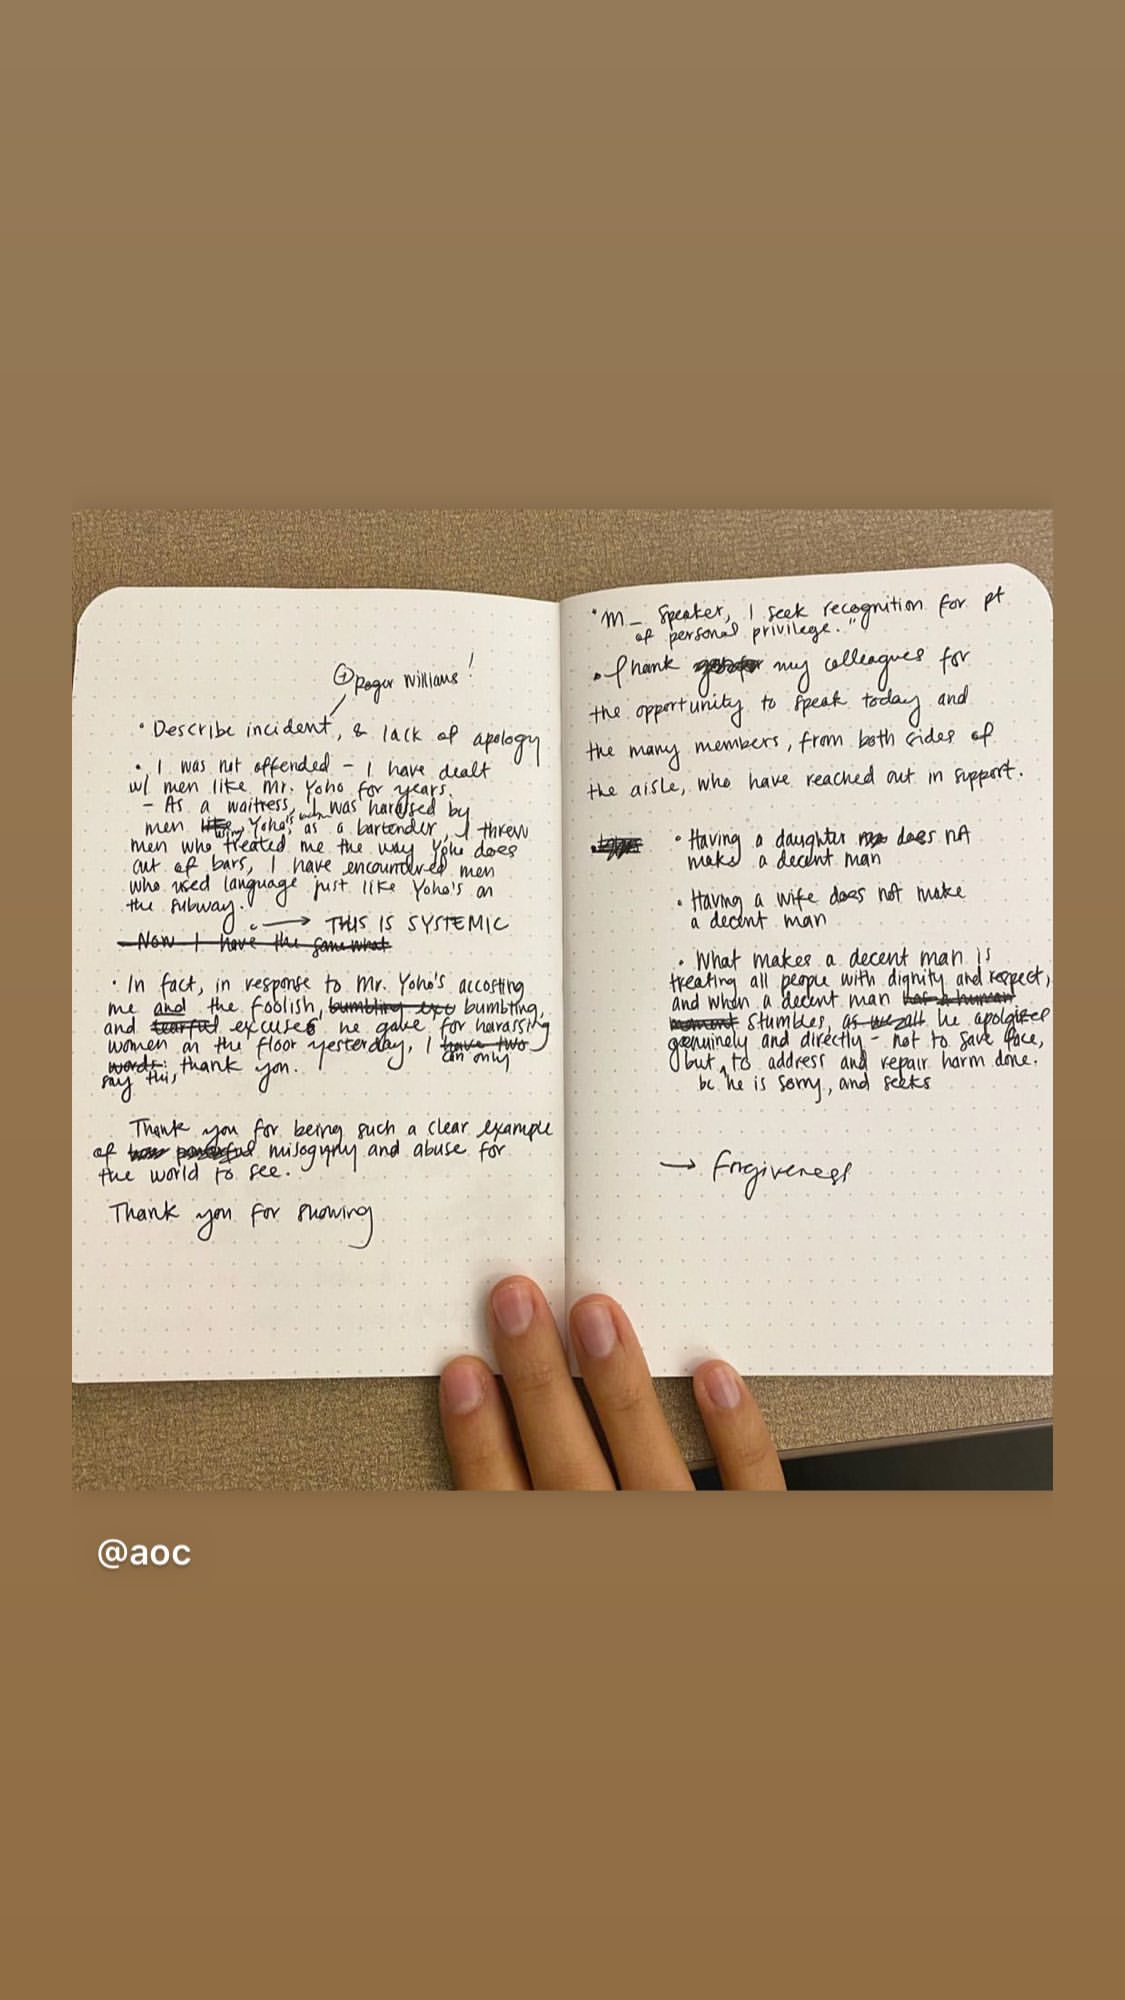 + Roger Williams!
• Describe incident, & lack of apology
• I was not offended – I have dealt
w/ men like Mr. Yoho for years.
– As a waitress, I was harassed by
men like Yoho's, as a bartender, I threw
men who treated me the way Yoho does
out of bars, I have encountered men
who used language just like Yoho's on
the subway.
→ THIS IS SYSTEMIC
Now I have the somewhat
• In fact, in response to Mr. Yoho's accosting
me and the foolish, bumbling exc bumbling,
and tearful excuses he gave for harassing
women on the floor yesterday, I have two
can only
words: thank you.
say this,
Thank you for being such a clear example
of how powerful misogyny and abuse for
the world to see.
Thank you for showing
"M_ Speaker, I seek recognition for pt
of personal privilege."
• Thank my colleagues for
the opportunity to speak today and
the many members, from both sides of
the aisle, who have reached out in support.
• Having a daughter does not
make a decent man
• Having a wife does not make
a decent man
• What makes a decent man is
treating all people with dignity and respect,
and when a decent man has a human
moment stumbles, as we all he apologizes
genuinely and directly – not to save face,
but, to address and repair harm done.
bc he is sorry, and seeks
→ Forgiveness
@aoc